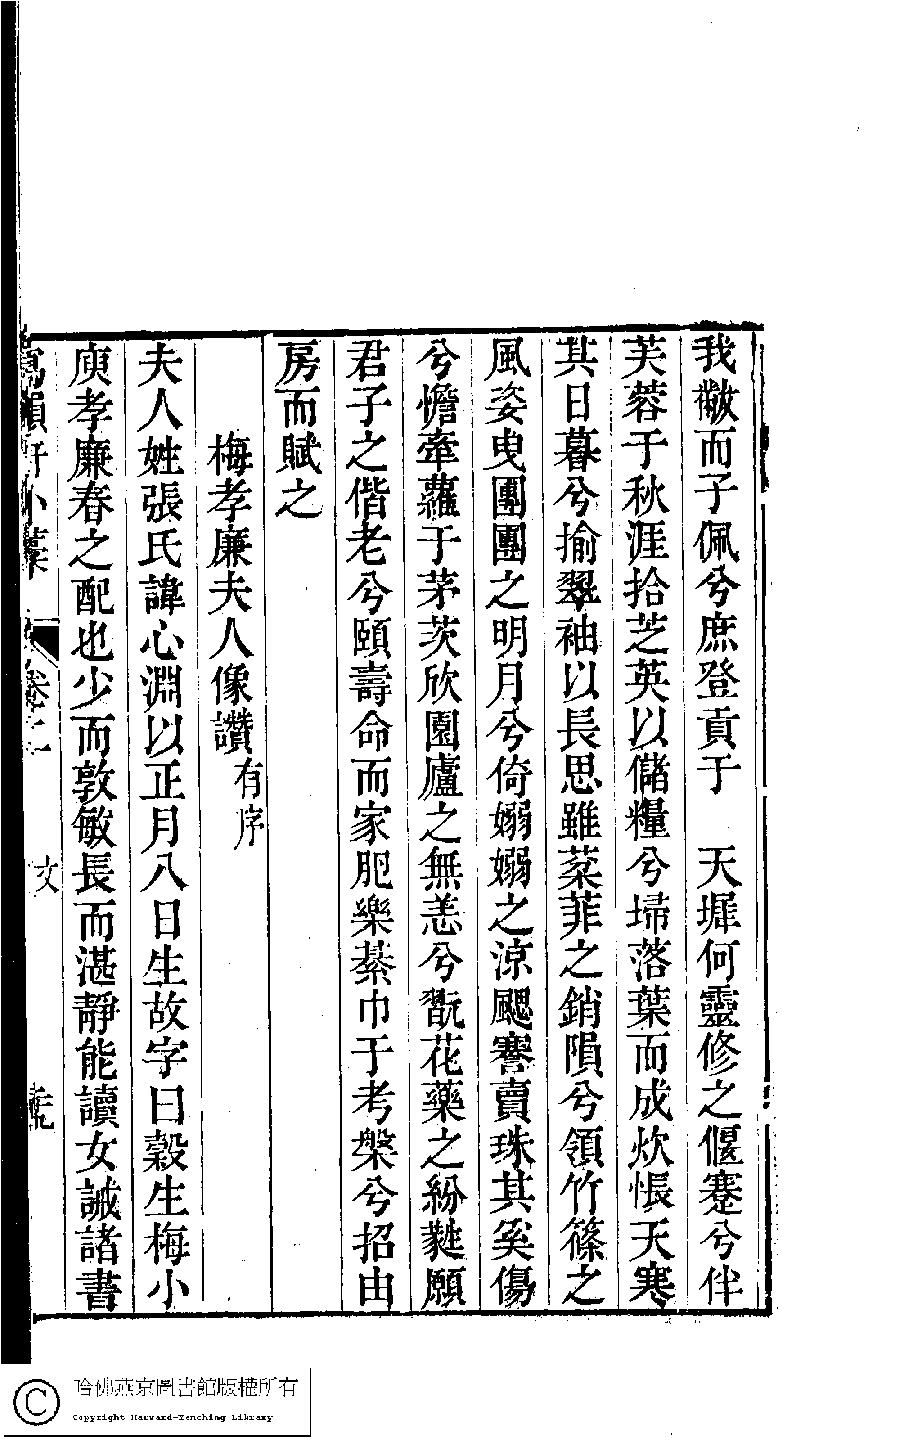 我黻而子佩兮庶登貢于　天墀何靈修之偃蹇兮伴
芙蓉于秋涯拾芝英以儲糧兮埽落葉而成炊悵天寒
其日暮兮揄翠袖以長思雖菜菲之銷隕兮領竹篠之
風姿曳團團之明月兮倚嫋嫋之涼颸謇賣珠其奚傷
兮憺牽蘿于茅茨欣園廬之無恙兮翫花藥之紛蕤願
君子之偕老兮頤壽命而家肥樂綦巾于考槃兮招由
房而賦之
梅孝廉夫人像讚有序
夫人姓張氏諱心淵以正月八日生故字曰穀生梅小
庾孝廉春之配也少而敦敏長而湛靜能讀女誡諸書
小 卷二 文
哈佛燕京圖書館版權所有
Copyright Harvard-Yenching Library